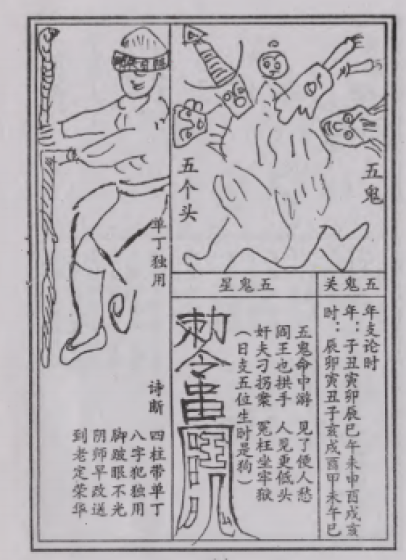 五鬼
五个头
五鬼关
年支论时
年：子丑寅卯辰巳午未申酉戌亥
时：辰卯寅丑子亥戌酉甲未午巳
五鬼星
五鬼命中游 见了便人愁
阎王也拱手 人见更低头
奸夫刁拐案 冤枉坐牢狱
（日支五位生时是狗）
勅令
单丁独用
诗断
四柱带单丁
八字犯独用
脚跛眼不光
阴师早改送
到老定荣华